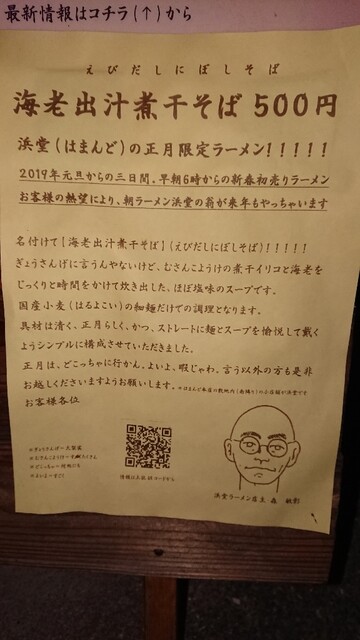 最新情報はコチラ(↑)から
えびだしにぼしそば
海老出汁煮干そば 500円
浜堂(はまんど)の正月限定ラーメン!!!!!
2019年元旦からの三日間。早朝6時からの新春初売りラーメン
お客様の熱望により、朝ラーメン浜堂の翁が来年もやっちゃいます
名付けて【海老出汁煮干そば】(えびだしにぼしそば)!!!!!
ぎょうさんげに言うんやないけど、むさんこようけの煮干イリコと海老を
じっくりと時間をかけて炊き出した、ほぼ塩味のスープです。
国産小麦(はるよこい)の細麺だけでの調理となります。
具材は清く、正月らしく、かつ、ストレートに麺とスープを愉悦して戴く
ようシンプルに構成させていただきました。
正月は、どこっちゃに行かん。よいよ、暇じゃわ。言う以外の方も是非
お越しくださいますようお願いします。※はまんど本店の敷地内(南隣り)の小店舗が浜堂です
お客様各位
※ぎょうさんげ=大袈裟
※むさんこようけ=たくさん
※どこっちゃ=何処にも
※よいよ=すごく
情報は上記QRコードから
浜堂ラーメン店主 森 敏彰